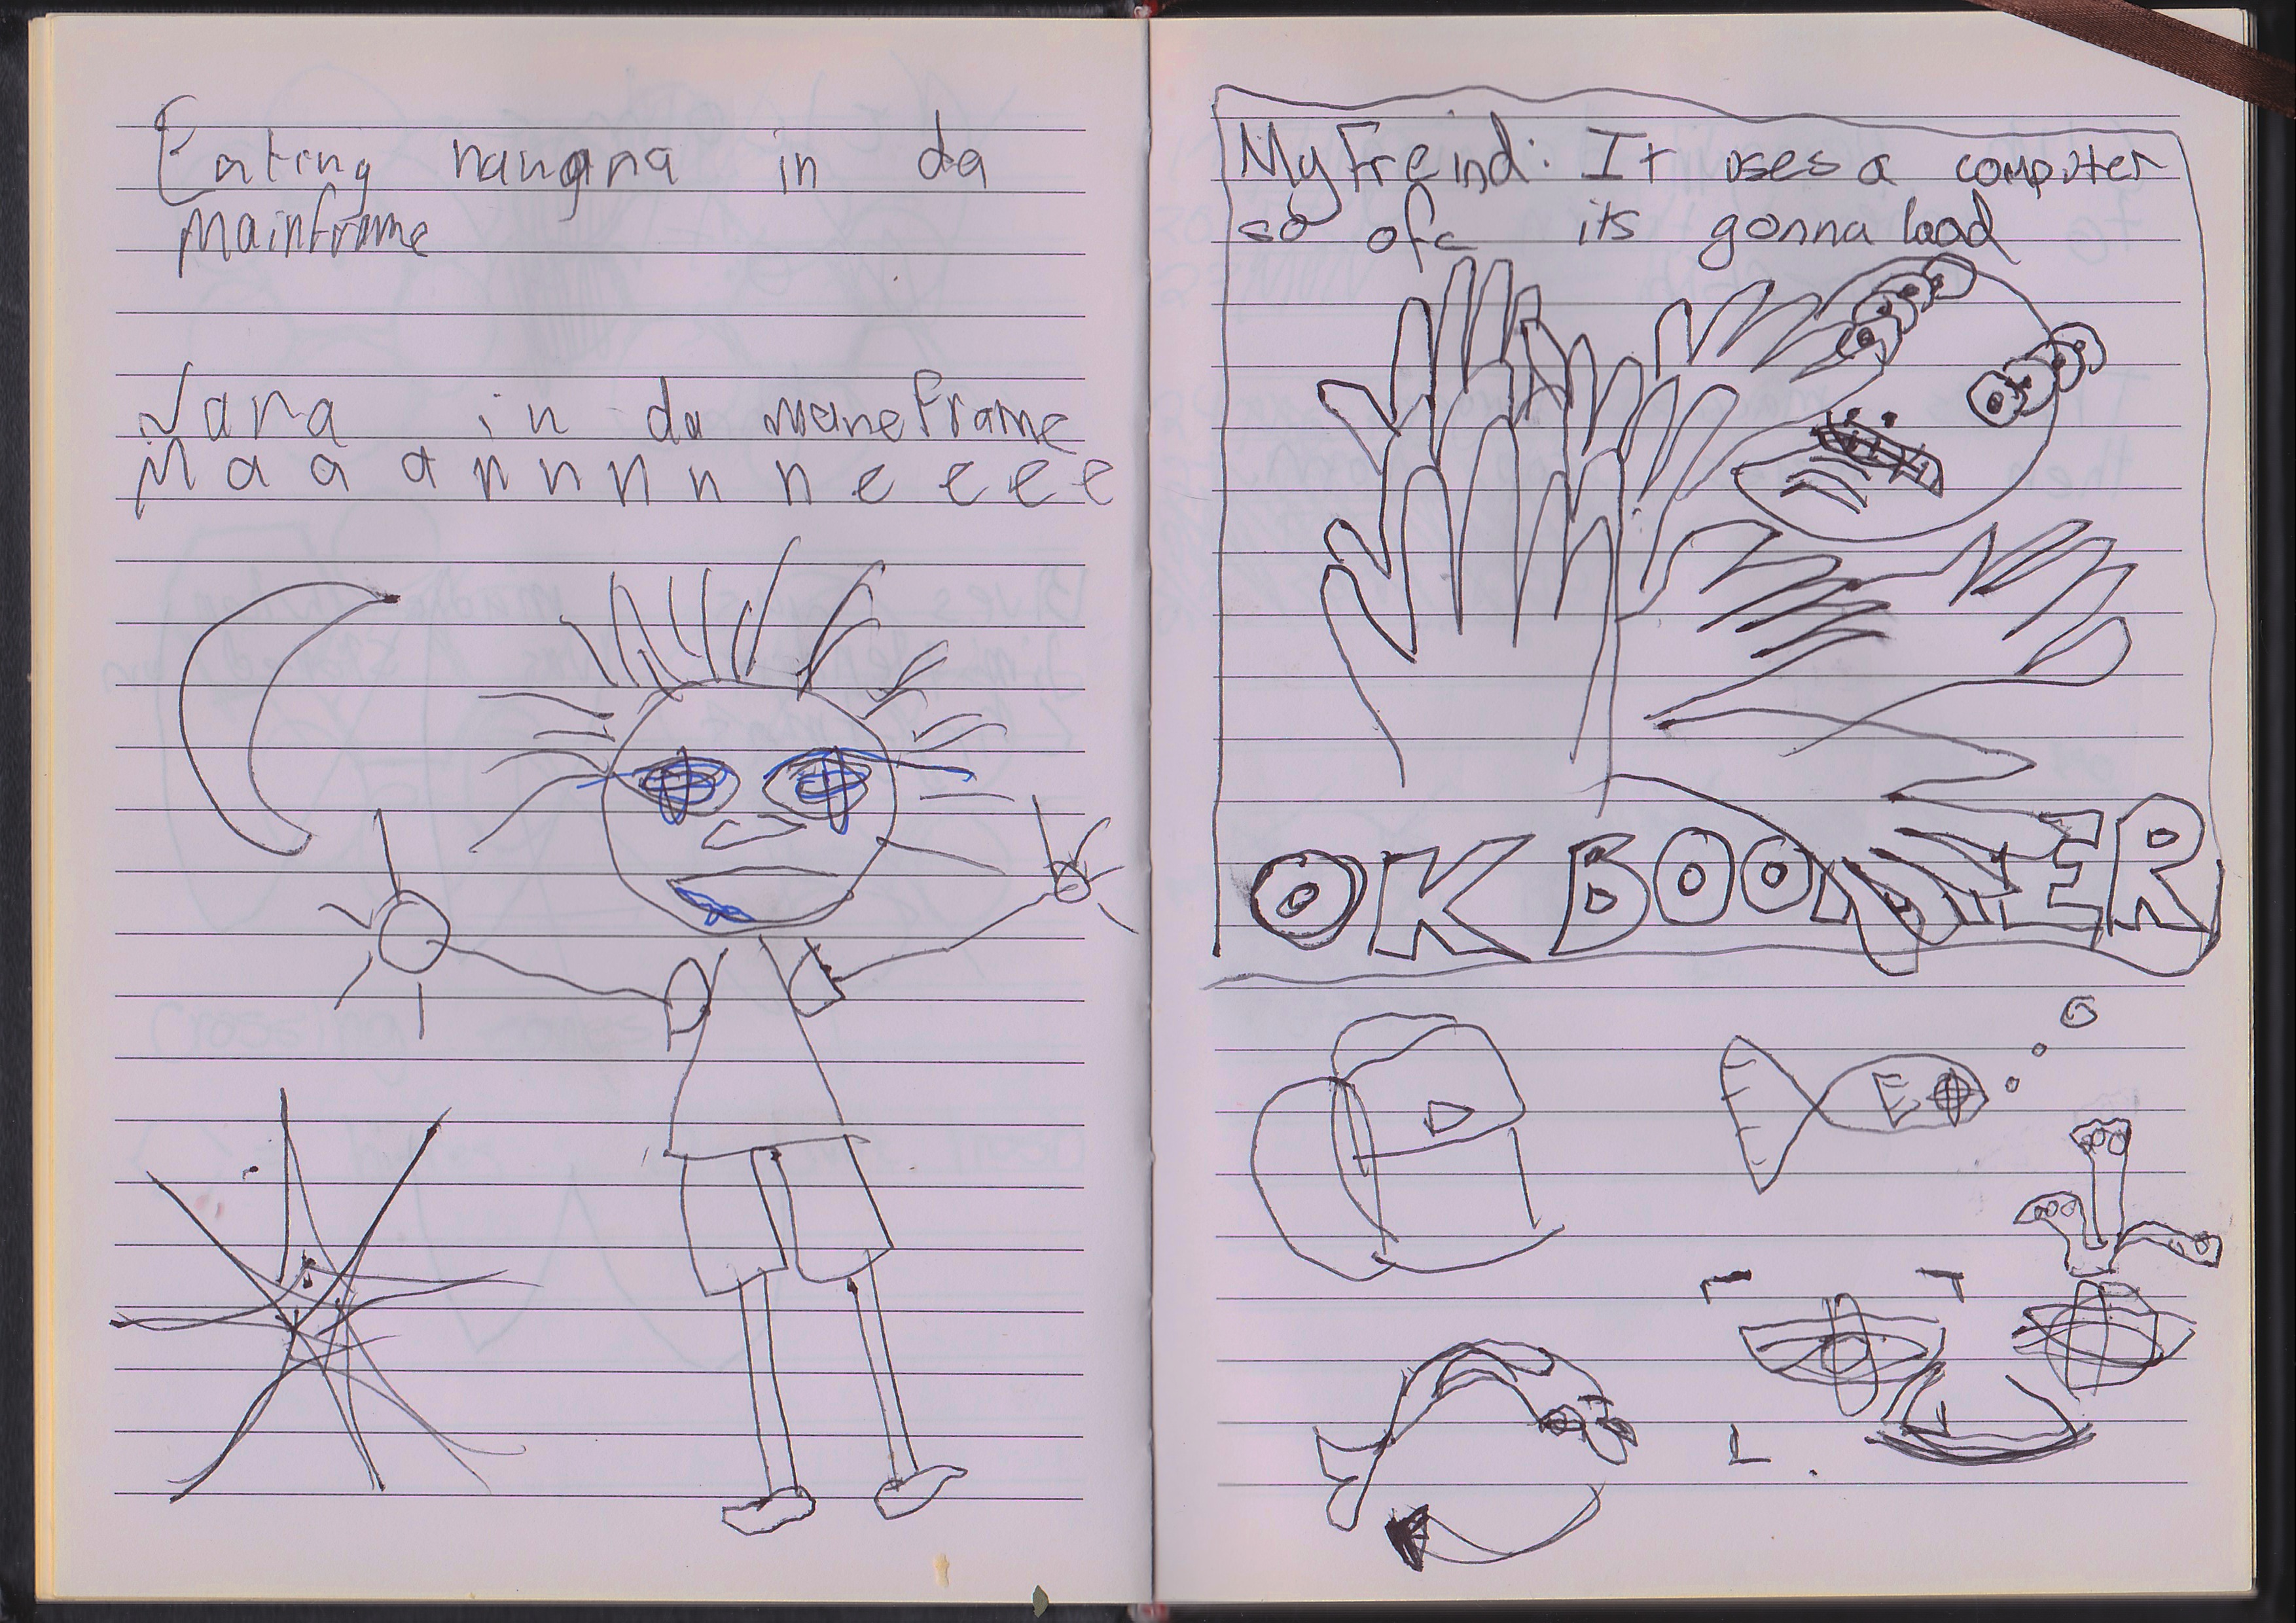 Eating nangna in da
mainframe
Nana in da maneframe
Maaannnnneeee
My Freind: It uses a computer
so ofc its gonna load
OK BOOMER
E